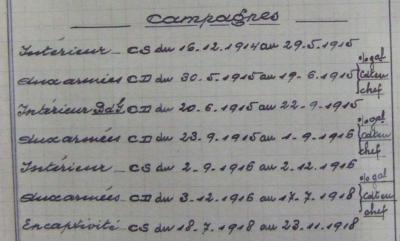 Campagnes
Intérieur _ CS du 16.12.1914 au 29.5.1915
Aux armées CD du 30.5.1915 au 19.6.1915
Intérieur CS du 20.6.1915 au 22.9.1915
Aux armées CD du 23.9.1915 au 1.9.1916
Intérieur _ CS du 2.9.1916 au 2.12.1916
Aux armées CD du 3.12.1916 au 17.7.1918
En captivité CS du 18.7.1918 au 23.11.1918